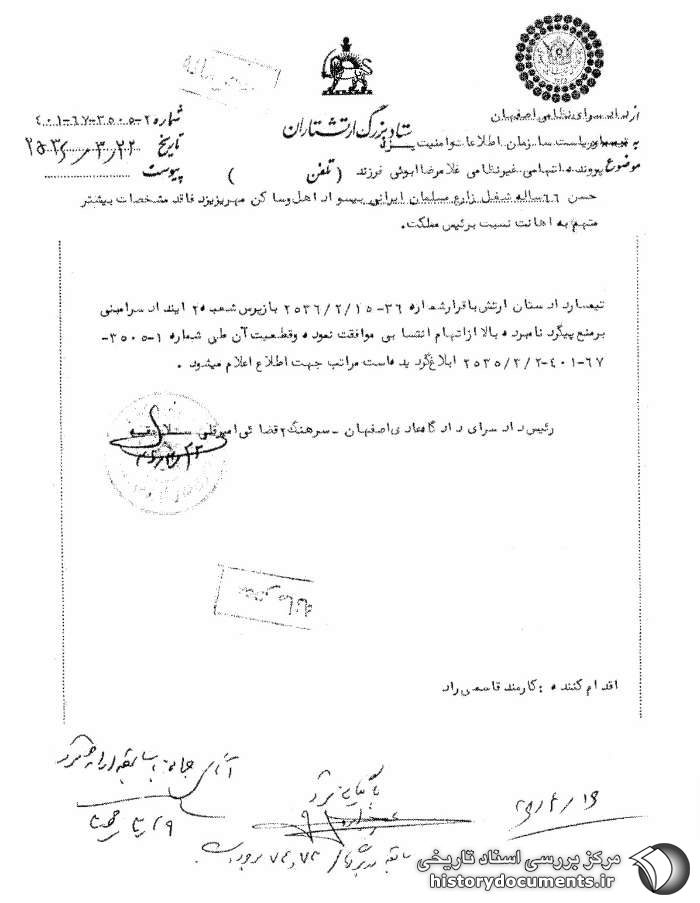 محرمانه
ستاد بزرگ ارتشتاران
از دادسرای نظامی اصفهان
به تیمسار ریاست سازمان اطلاعات و امنیت یزد
موضوع پرونده اتهامی غیرنظامی غلامرضا ابوئی فرزند (تلفن )
شماره ۲-۳۵۰۵-۶۷-۴۰۱
تاریخ
پیوست
حسن ۶۶ ساله شغل زارع مسلمان ایرانی بیسواد اهل و ساکن مهریز یزد فاقد مشخصات بیشتر
متهم به اهانت نسبت به رئیس مملکت.
تیمسار دادستان ارتش با قرار شماره ۳۶-۲۵۳۶/۲/۱۵ بازپرس شعبه ۲ این دادسرا مبنی
بر منع پیگرد نامبرده بالا از اتهام انتسابی موافقت نموده و قطعیت آن طی شماره ۱-۳۵۰۵-
۶۷-۴۰۱-۲۵۳۵/۳/۲ ابلاغ گردیده است مراتب جهت اطلاع اعلام میشود .
رئیس دادسرای دادگاه عادی اصفهان - سرهنگ ۲ قضائی امیرقلی
محرمانه
اقدام کننده : کارمند قاسمی راد
بایگانی شود
مرکز بررسی اسناد تاریخی
historydocuments.ir